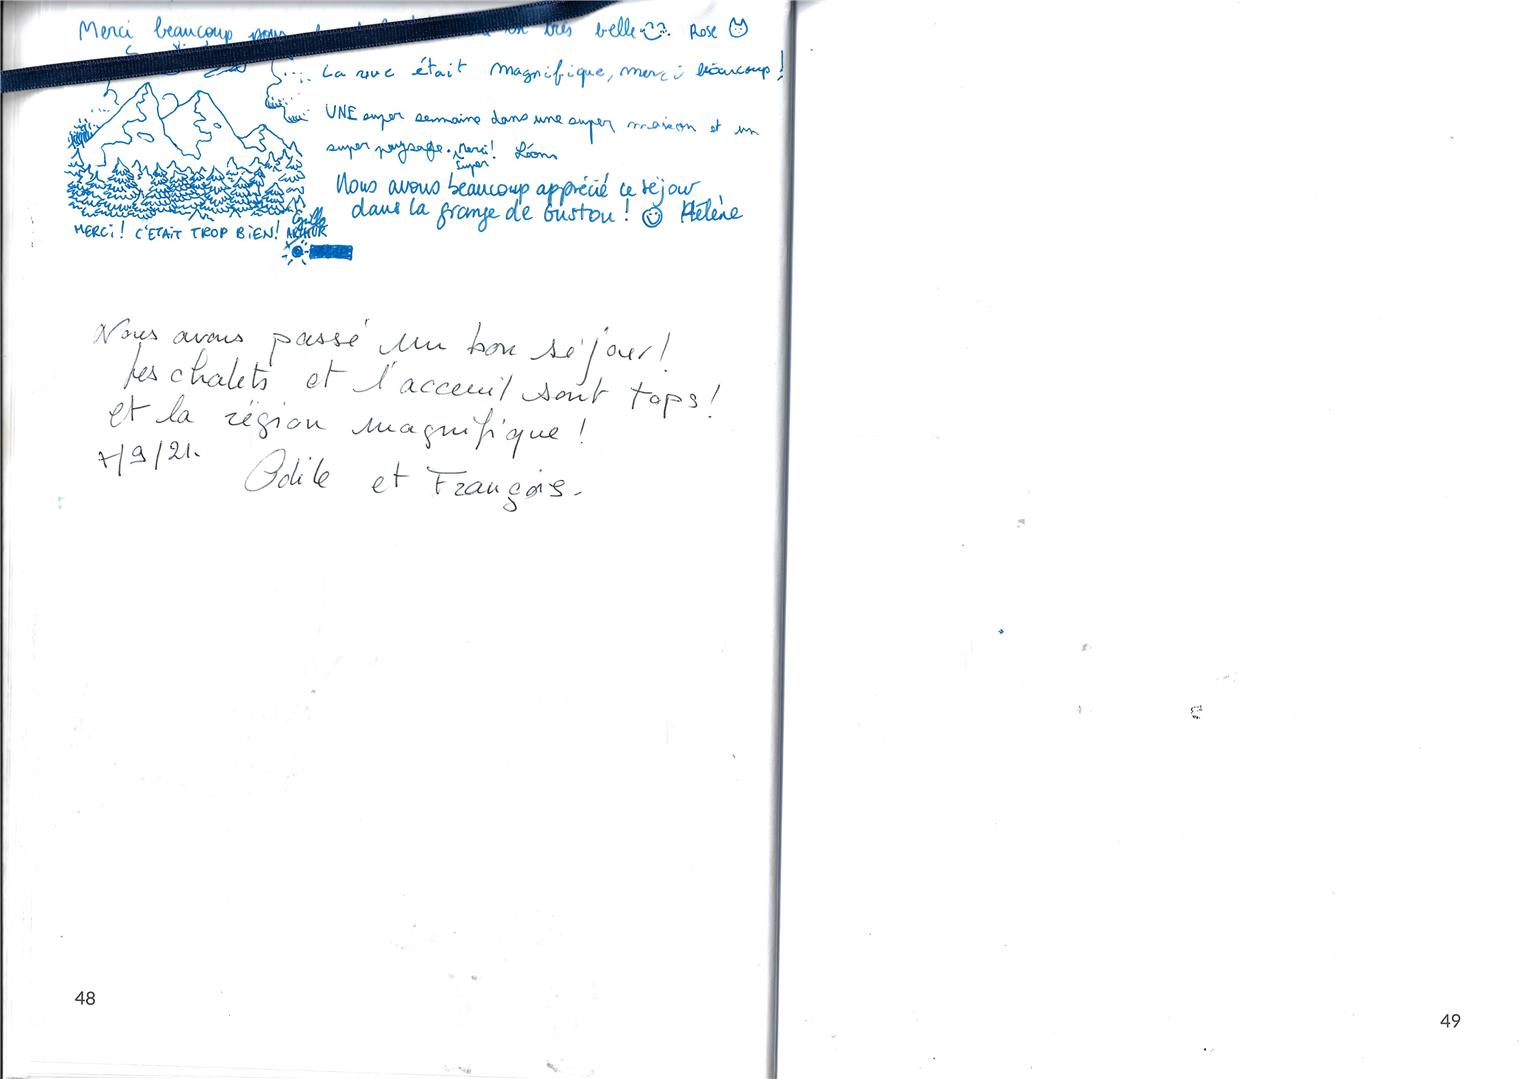 Merci beaucoup très belle. Rose
La vue était magnifique, merci beaucoup!
UNE super semaine dans une super maison et un
super paysage. Merci!
super
Nous avons beaucoup apprécié ce séjour
dans la grange de Guston! Hélène
MERCI! C'ETAIT TROP BIEN! ARTHUR
Nous avons passé un bon séjour!
Les chalets et l'acceuil sont tops!
et la région magnifique!
7/9/21.
Odile et François.
48
49